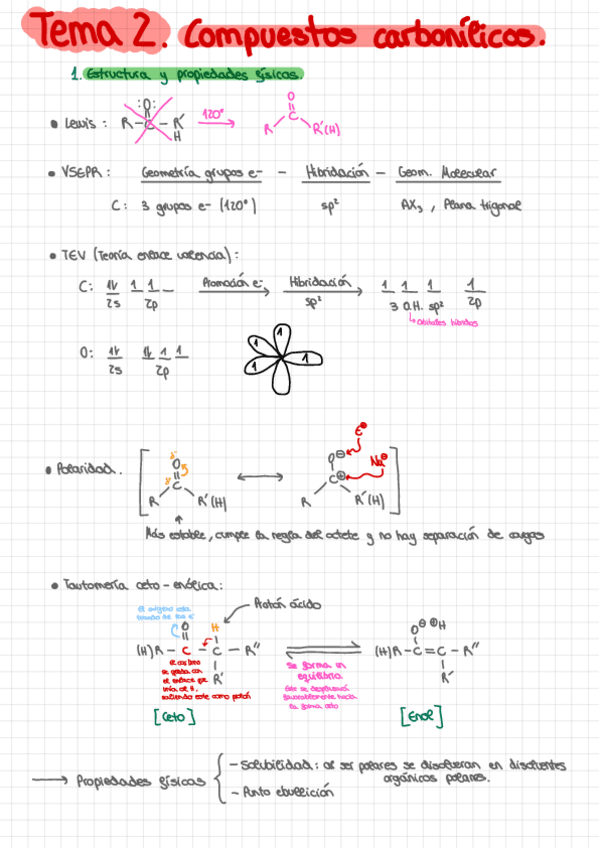 Tema 2. Compuestos carbonílicos.
1. Estructura y propiedades físicas.
• Lewis : R – C – R' H :O: 120° O C R R'(H)
• VSEPR : Geometría grupos e- – Hibridación – Geom. Molecular
C : 3 grupos e- (120°) sp² AX₃ , Plana trigonal
• TEV (Teoría enlace valencia) :
C: 1l 1 1 _ Promoción e- Hibridación 1 1 1 1
2s 2p sp² 3 O.H. sp² 2p
↳ orbitales híbridos
O: 1l 1l 1 1 1 1 1 1
2s 2p
E⊕
• Polaridad. δ- O O⊖ Na⊖
δ+ C C⊕
R R'(H) R R'(H)
Más estable, cumple la regla del octete y no hay separación de cargas
• Tautomería ceto-enólica :
Protón ácido
O H O⊖ ⊕H
(H)R – C – C – R'' (H)R – C = C – R''
R' R'
el carbono
se queda con
el enlace que
tenía el H,
saliendo este como protón
Se forma un
equilibrio
Este se desplazará
favorablemente hacia
la forma ceto
[Ceto] [Enol]
→ Propiedades físicas
– Solubilidad : al ser polares se disolveran en disolventes
orgánicos polares.
– Punto ebullición